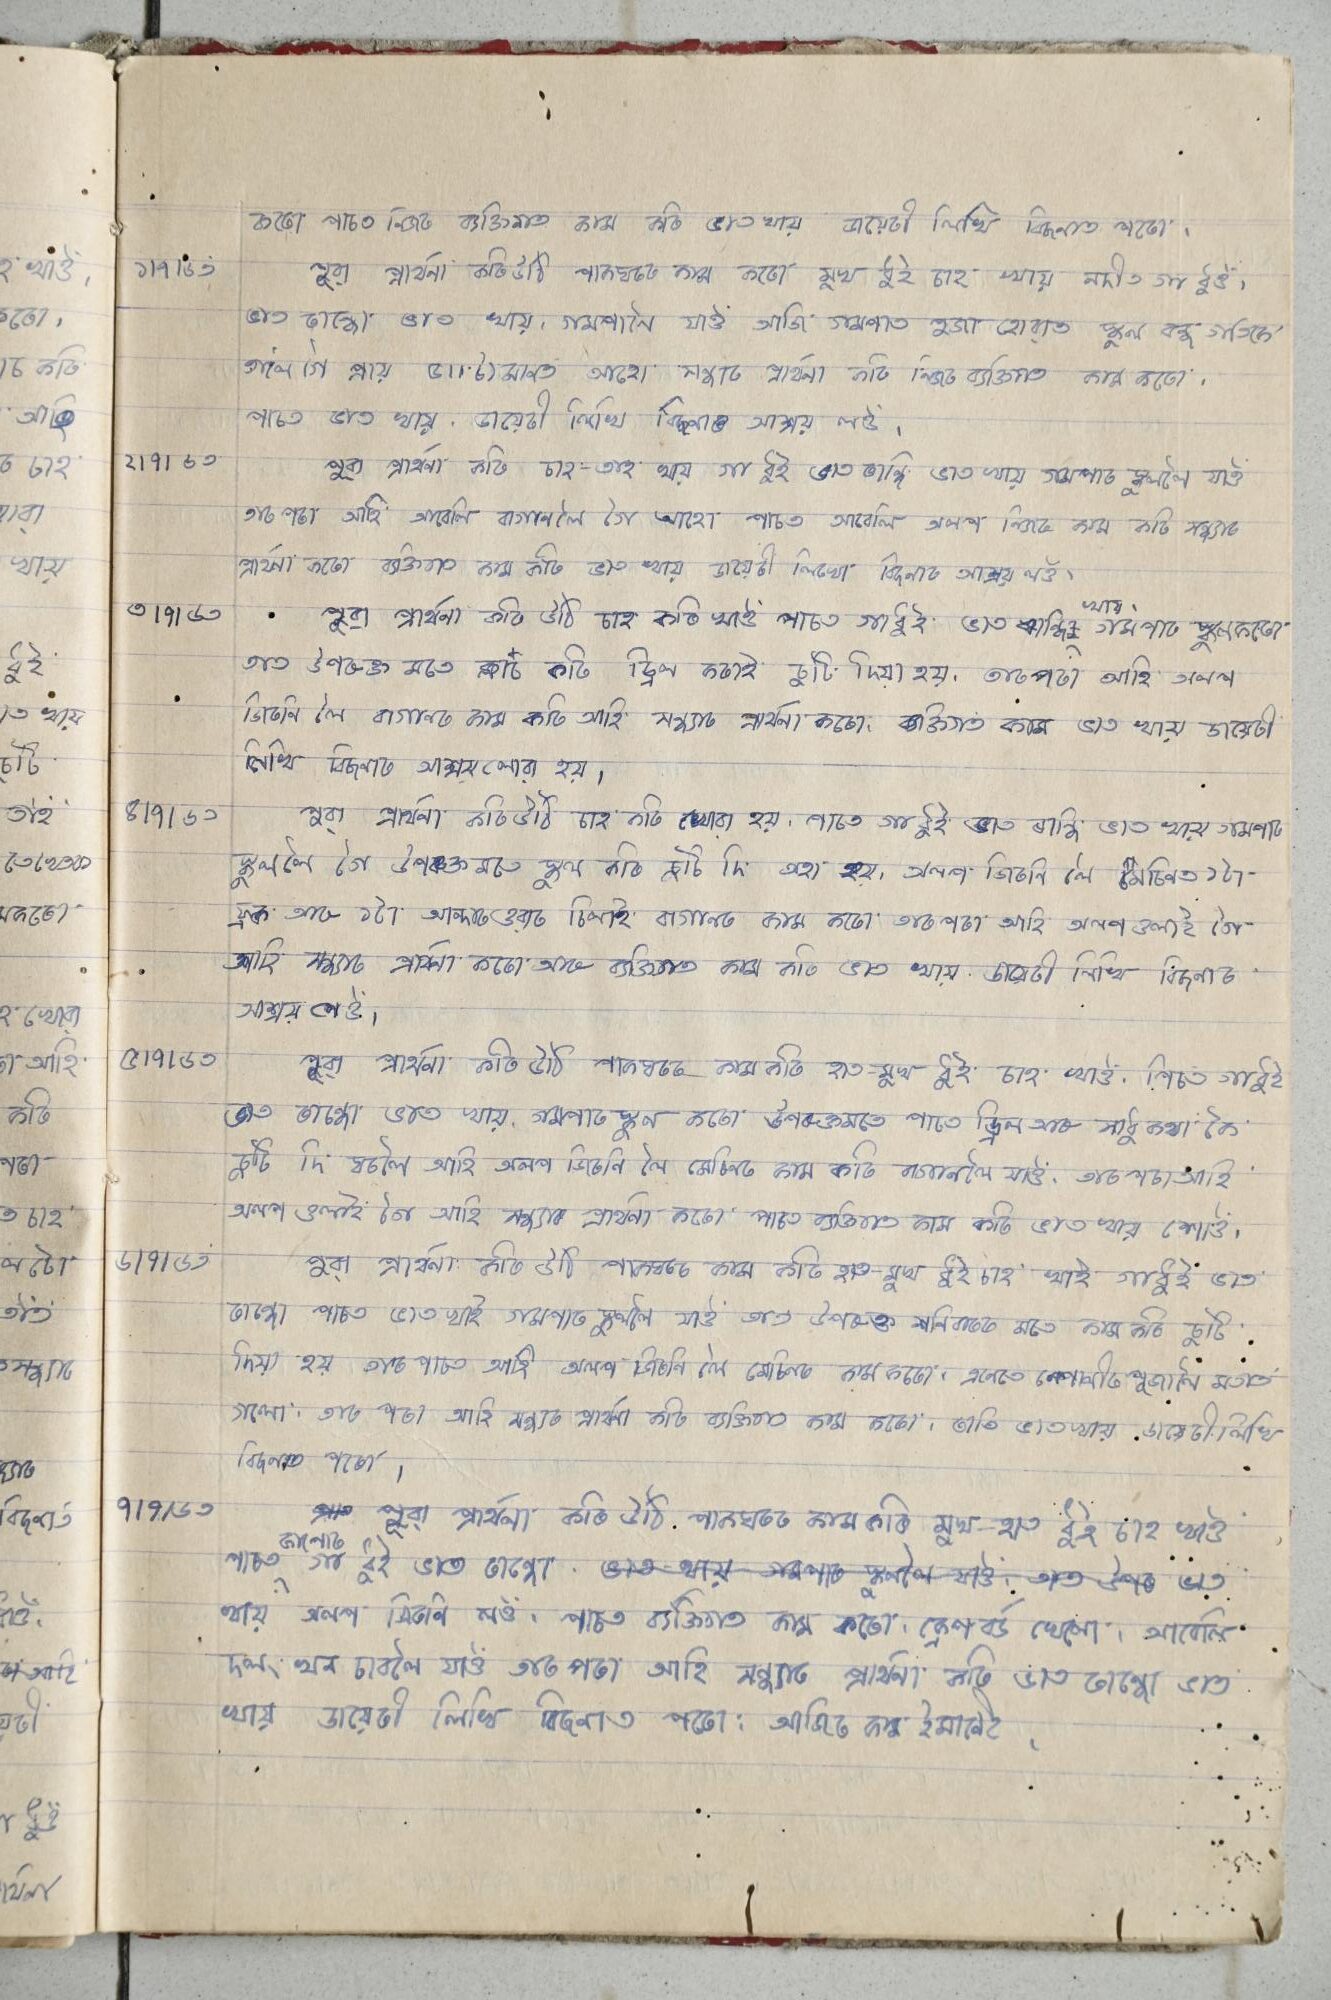 কৰো পাচত নিজৰ ব্যক্তিগত কাম কৰি ভাত খায় ডায়েৰী লিখি বিছনাত পৰো।
১।৭।৬৩ পুৱা প্ৰাৰ্থনা কৰি উঠি পাকঘৰত কাম কৰো মুখ ধুই চাহ খায় নদীত গা ধুওঁ।
ভাত ৰান্ধো ভাত খায়, গমপালৈ যাওঁ আজি গমপাত পুজা হোৱাত স্কুল বন্ধ গতিকে
তালৈ গৈ প্ৰায় আহো সন্ধ্যাত প্ৰাৰ্থনা কৰি নিজৰ ব্যক্তিগত কাম কৰো।
পাচত ভাত খায়, ডায়েৰী লিখি বিছনাত আশ্ৰয় লওঁ।
২।৭।৬৩ পুৱা প্ৰাৰ্থনা কৰি চাহ-তাহ খায় গা ধুই ভাত ৰান্ধি ভাত খায় গমপাত স্কুললৈ যাওঁ
তাৰ পৰা আহি আবেলি বাগানলৈ গৈ আহো পাচত আবেলি অলপ নিজৰ কাম কৰি সন্ধ্যাত
প্ৰাৰ্থনা কৰো ব্যক্তিগত কাম কৰি ভাত খায় ডায়েৰী লিখো বিছনাত আশ্ৰয় লওঁ।
৩।৭।৬৩ পুৱা প্ৰাৰ্থনা কৰি উঠি চাহ কৰি খাওঁ পাচত গা ধুই ভাত ৰান্ধি খায় গমপাত স্কুল কৰো
তাত উপৰুক্ত মতে কৰি ড্ৰিল কৰাই ছুটি দিয়া হয়। তাৰ পৰা আহি অলপ
জিৰনি লৈ বাগানত কাম কৰি আহি সন্ধ্যাত প্ৰাৰ্থনা কৰো। ব্যক্তিগত কাম ভাত খায় ডায়েৰী
লিখি বিছনাত আশ্ৰয় লোৱা হয়।
৪।৭।৬৩ পুৱা প্ৰাৰ্থনা কৰি উঠি চাহ কৰি খোৱা হয়। পাচত গা ধুই ভাত ৰান্ধি ভাত খায় গমপাত
স্কুললৈ গৈ উপৰুক্ত মতে স্কুল কৰি ছুটি দি অহা হয়। অলপ জিৰনি লৈ মেচিনত ১টা
ফ্ৰক আৰু ১টা চিলাই বাগানত কাম কৰো তাৰ পৰা আহি অলপ ওলাই গৈ
আহি সন্ধ্যাত প্ৰাৰ্থনা কৰো আৰু ব্যক্তিগত কাম কৰি ভাত খায়। ডায়েৰী লিখি বিছনাত
আশ্ৰয় লওঁ।
৫।৭।৬৩ পুৱা প্ৰাৰ্থনা কৰি উঠি পাকঘৰত কাম কৰি হাত-মুখ ধুই চাহ খাওঁ। পিচত গা ধুই
ভাত ৰান্ধো ভাত খায়, গমপাত স্কুল কৰো উপৰুক্তমতে পাতে ড্ৰিল আৰু সাধু কথা কৈ
ছুটি দি ঘৰলৈ আহি অলপ জিৰনি লৈ মেচিনত কাম কৰি বাগানলৈ যাওঁ। তাৰ পৰা আহি
অলপ ওলাই গৈ আহি সন্ধ্যাত প্ৰাৰ্থনা কৰো পাচত ব্যক্তিগত কাম কৰি ভাত খায় শোওঁ।
৬।৭।৬৩ পুৱা প্ৰাৰ্থনা কৰি উঠি পাকঘৰত কাম কৰি হাত-মুখ ধুই চাহ খাই গা ধুই ভাত
ৰান্ধো পাচত ভাত খাই গমপাত স্কুললৈ যাওঁ তাত উপৰুক্ত শনিবাৰৰ মতে কাম কৰি ছুটি
দিয়া হয় তাৰ পাচত আহি অলপ জিৰনি লৈ মেচিনত কাম কৰো। এনেতে নেপালীৰ পুজালৈ মতাত
গলো। তাৰ পৰা আহি সন্ধ্যাত প্ৰাৰ্থনা কৰি ব্যক্তিগত কাম কৰো। ৰাতি ভাত খায় ডায়েৰী লিখি
বিছনাত পৰো।
৭।৭।৬৩ পুৱা প্ৰাৰ্থনা কৰি উঠি পাকঘৰত কাম কৰি মুখ-হাত ধুই চাহ খাওঁ
পাচত কাপোৰ গা ধুই ভাত ৰান্ধো। ভাত খায় গমপাত স্কুললৈ যাওঁ। তাত উপৰু ভাত
খায় অলপ জিৰনি লওঁ। পাচত ব্যক্তিগত কাম কৰো। খেলো। আবেলি
দলং খন চাবলৈ যাওঁ তাৰ পৰা আহি সন্ধ্যাত প্ৰাৰ্থনা কৰি ভাত ৰান্ধো ভাত
খায় ডায়েৰী লিখি বিছনাত পৰো। আজিৰ কাম ইমানেই।